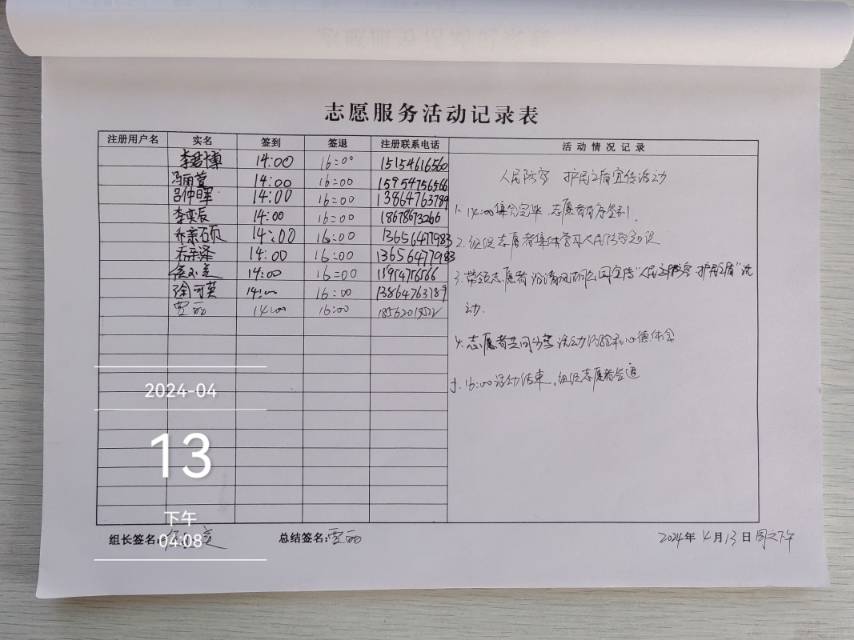 志愿服务活动记录表
注册用户名 实名 签到 签退 注册联系电话 活动情况记录
14:00 16:00 15154616560
冯丽萱 14:00 16:00 15954756566
吕仲晖 14:00 16:00 13864763789
李奕辰 14:00 16:00 18678673266
乔亲硕 14:00 16:00 13656477983
乔亲泽 14:00 16:00 13656477983
14:00 16:00
徐可英 14:00 16:00 13864763789
贾丽 14:00 16:00
人民防空 护民之盾宣传活动
1. 14:00集合完毕,志愿者有序签到.
2. 组织志愿者集体学习人民防空知识
3. 带领志愿者 宣传"人民防空 护民之盾"活
动.
4. 志愿者共同分享活动 心得体会
5. 16:00活动结束,组织志愿者签退
2024-04
13
下午
04:08
组长签名:
总结签名:贾丽
2024年4月13日 下午